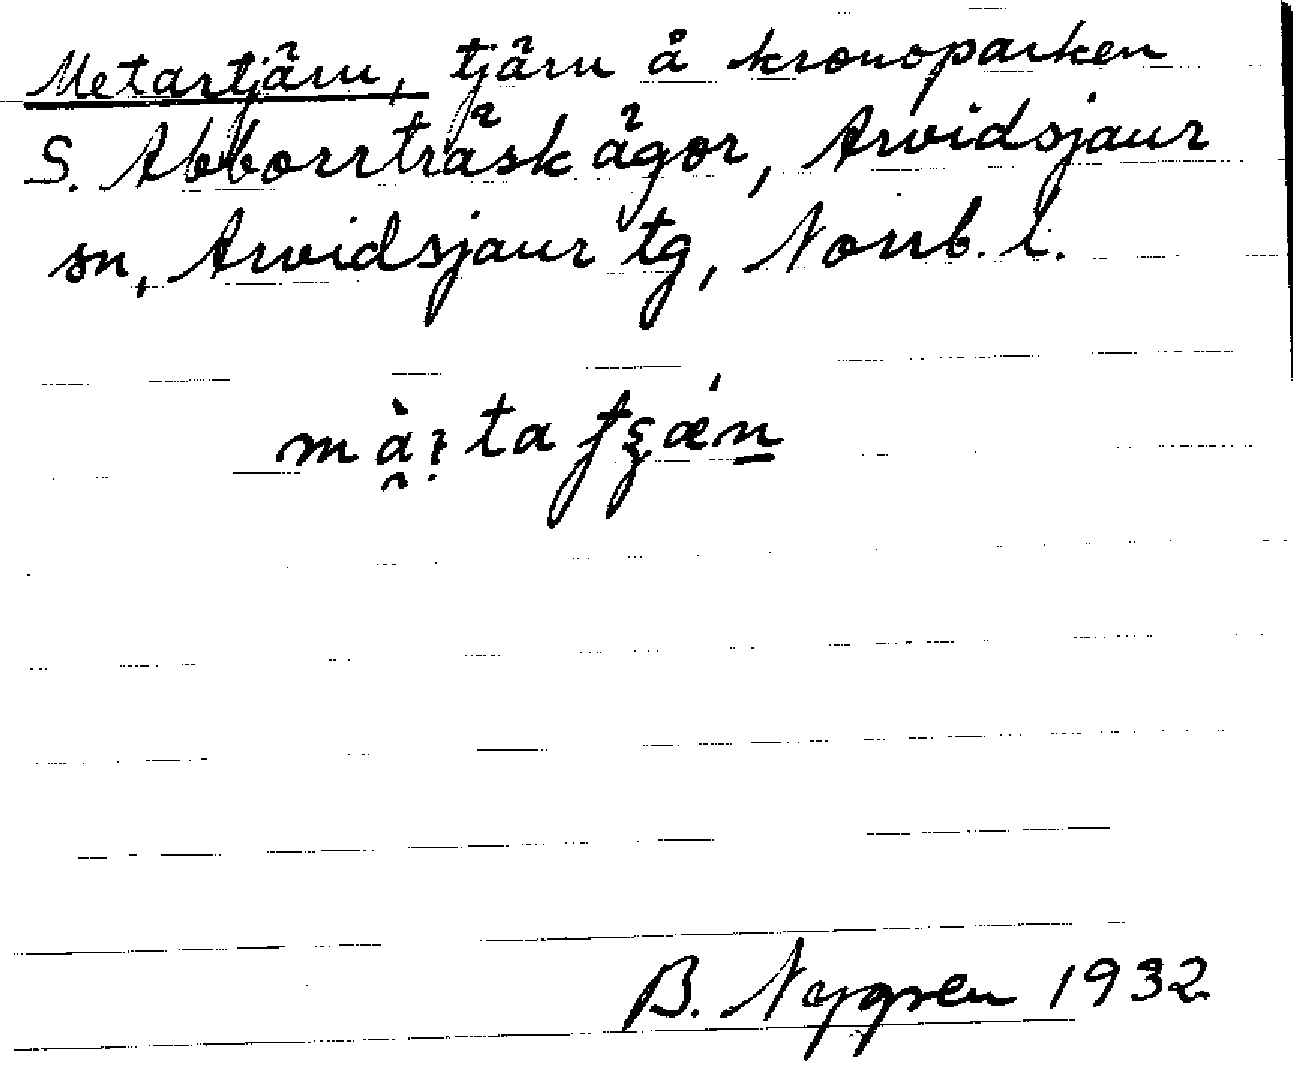 Metartjärn, tjärn å kronoparken
S. Abborrträsk ägor, Arvidsjaur
sn, Arvidsjaur tg, Norrb. l.
B. Nygren 1932